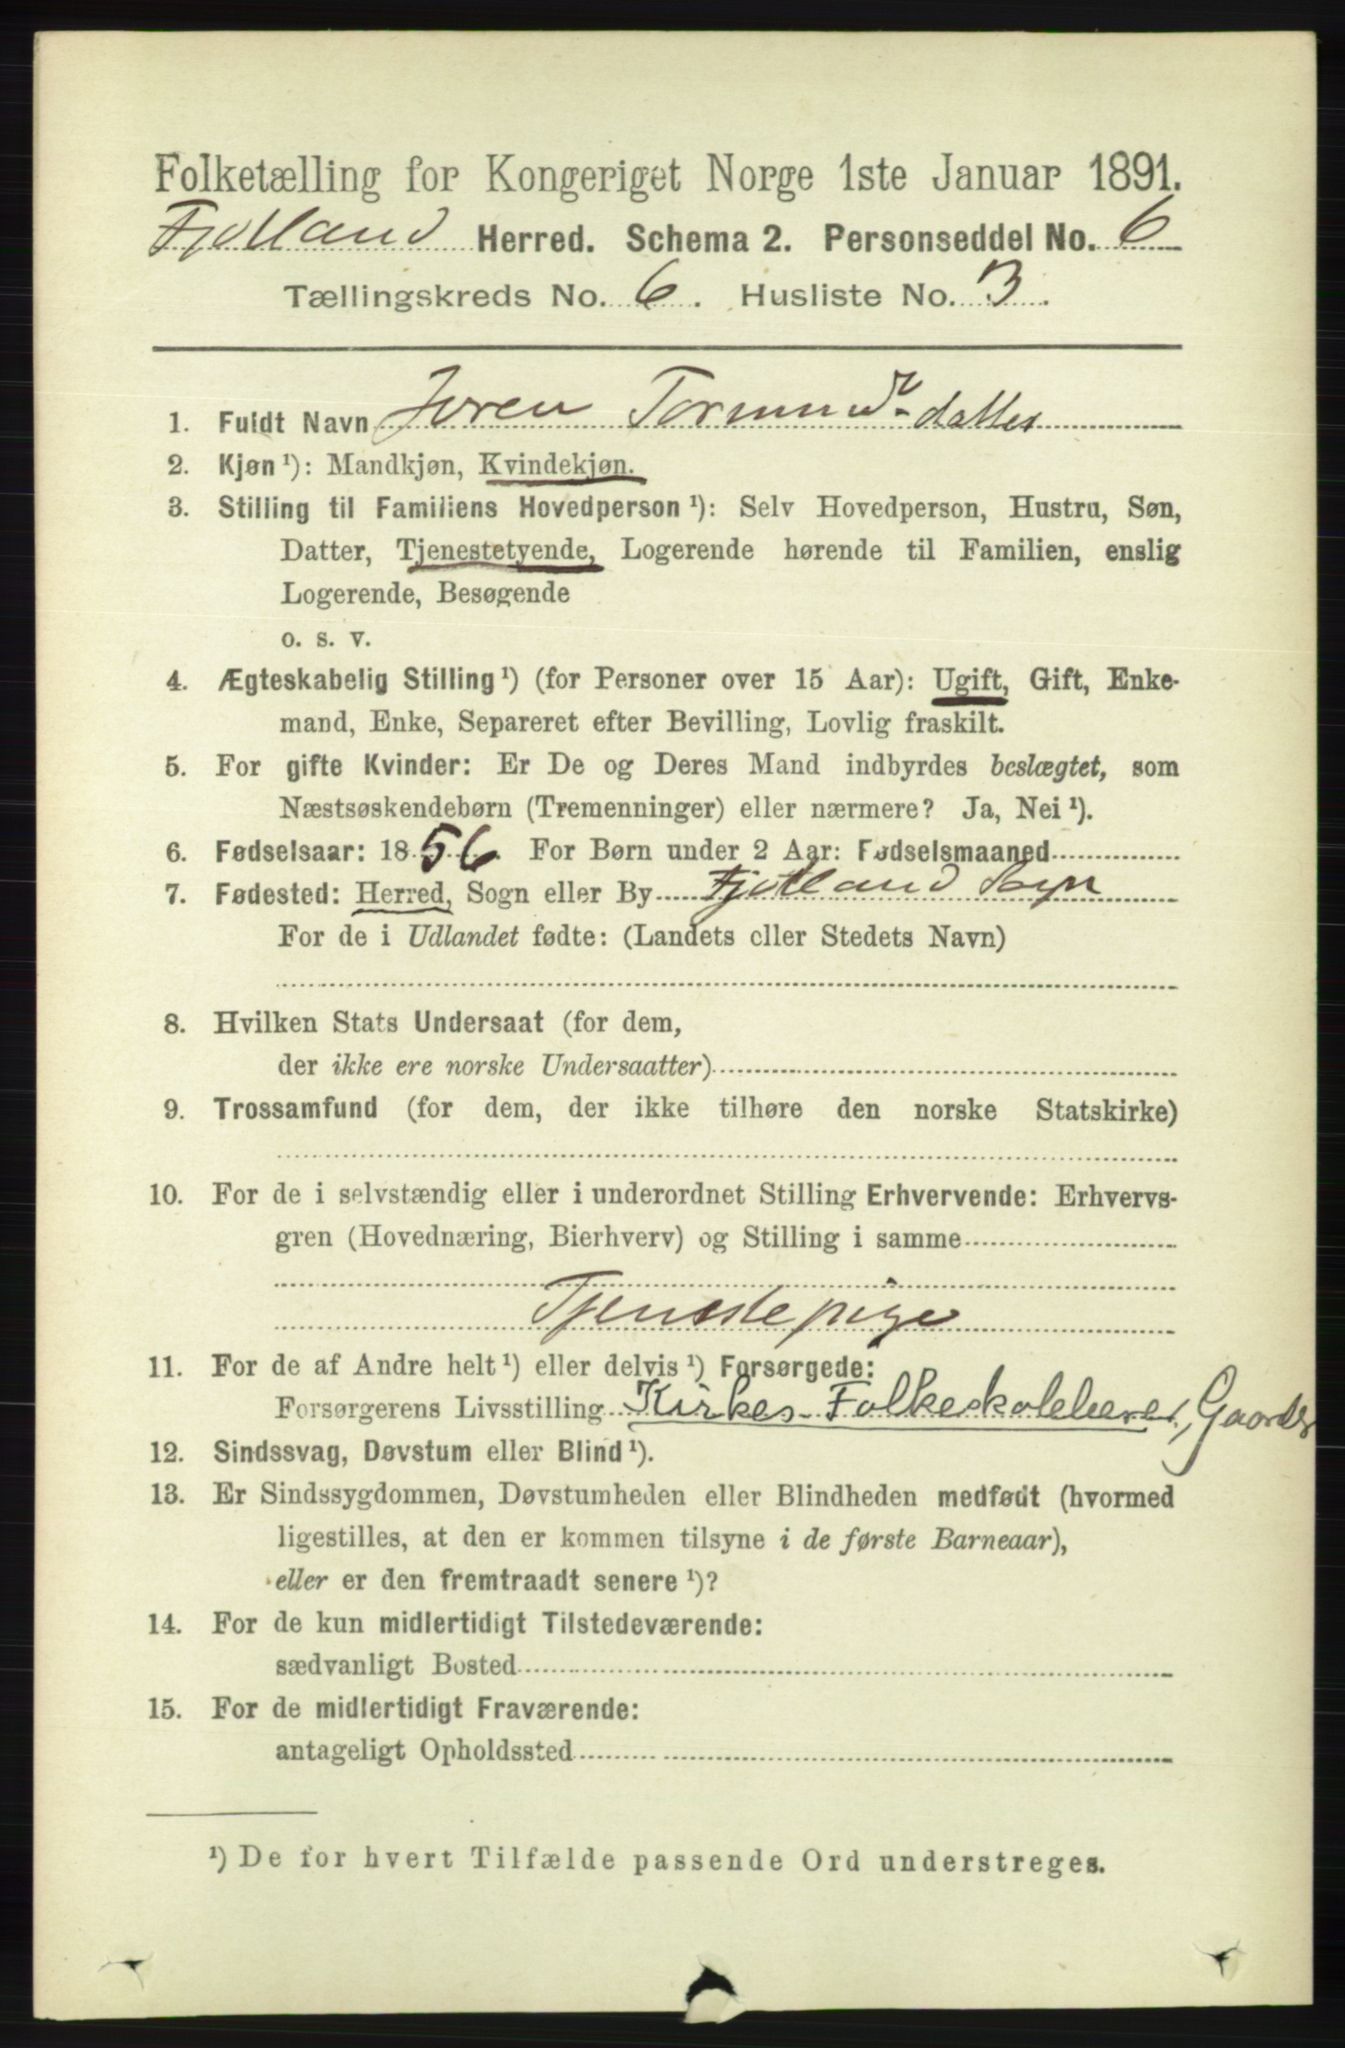 Folketælling for Kongeriget Norge 1ste Januar 1891.
Fjotland Herred. Schema 2. Personseddel No. 6
Tællingskreds No. 6. Husliste No. 3.
1. Fuldt Navn Joren Tormunds-datter
2. Kjøn ¹): Mandkjøn, Kvindekjøn.
3. Stilling til Familiens Hovedperson ¹): Selv Hovedperson, Hustru, Søn,
Datter, Tjenestetyende, Logerende hørende til Familien, enslig
Logerende, Besøgende
o. s. v.
4. Ægteskabelig Stilling ¹) (for Personer over 15 Aar): Ugift, Gift, Enke-
mand, Enke, Separeret efter Bevilling, Lovlig fraskilt.
5. For gifte Kvinder: Er De og Deres Mand indbyrdes beslægtet, som
Næstsøskendebørn (Tremenninger) eller nærmere? Ja, Nei ¹).
6. Fødselsaar: 1856. For Børn under 2 Aar: Fødselsmaaned
7. Fødested: Herred, Sogn eller By Fjotland Sogn
For de i Udlandet fødte: (Landets eller Stedets Navn)
8. Hvilken Stats Undersaat (for dem,
der ikke ere norske Undersaatter)
9. Trossamfund (for dem, der ikke tilhøre den norske Statskirke)
10. For de i selvstændig eller i underordnet Stilling Erhvervende: Erhvervs-
gren (Hovednæring, Bierhverv) og Stilling i samme
Tjenstepige
11. For de af Andre helt ¹) eller delvis ¹) Forsørgede:
Forsørgerens Livsstilling Kirkes- Folkeskolelærer, Gaardb
12. Sindssvag, Døvstum eller Blind ¹).
13. Er Sindssygdommen, Døvstumheden eller Blindheden medfødt (hvormed
ligestilles, at den er kommen tilsyne i de første Barneaar),
eller er den fremtraadt senere ¹)?
14. For de kun midlertidigt Tilstedeværende:
sædvanligt Bosted
15. For de midlertidigt Fraværende:
antageligt Opholdssted
¹) De for hvert Tilfælde passende Ord understreges.